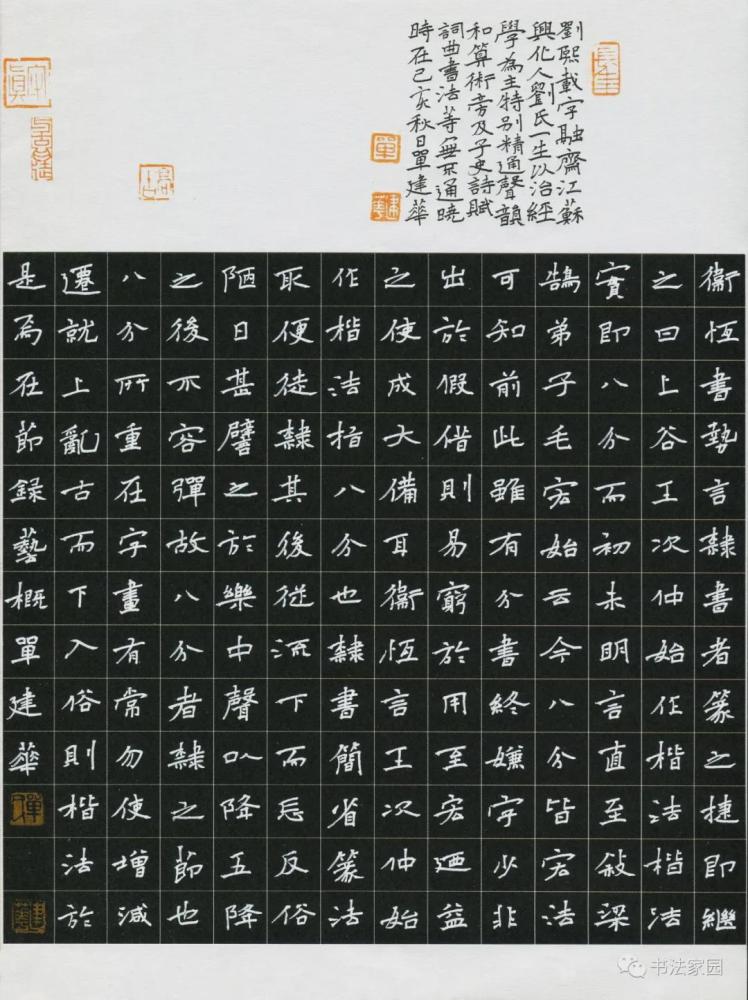 劉熙載字融齋江蘇
興化人劉氏一生以治經
學為主特别精通聲韻
和算術旁及子史詩賦
詞曲書法等無不通曉
時在己亥秋日單建華
單
建華
衛恆書勢言隸書者篆之捷即繼
之曰上谷王次仲始作楷法楷法
實即八分而初未明言直至敍梁
鵠弟子毛宏始云今八分皆宏法
可知前此雖有分書終嫌字少非
出於假借則易窮於用至宏廼益
之使成大備耳衛恆言王次仲始
作楷法指八分也隸書簡省篆法
取便徒隸其後從流下而忘反俗
陋日甚譬之於樂中聲以降五降
之後不容彈故八分者隸之節也
八分所重在字畫有常勿使增減
遷就上亂古而下入俗則楷法於
是為在節録藝概單建華
书法家园